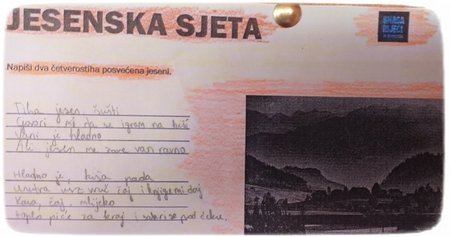 JESENSKA SJETA
SNAGA
RIJEČI
Napiši dva četverostiha posvećena jeseni.
Tiha jesen šušti
Govori mi da se igram na kiši
Vani je hladno
Ali jesen me zove van ravno
Hladno je, kiša pada
Unutra uz vruć čaj i knjige mi daj
Kava, čaj, mlijeko
toplo piće za kraj i pod deku.